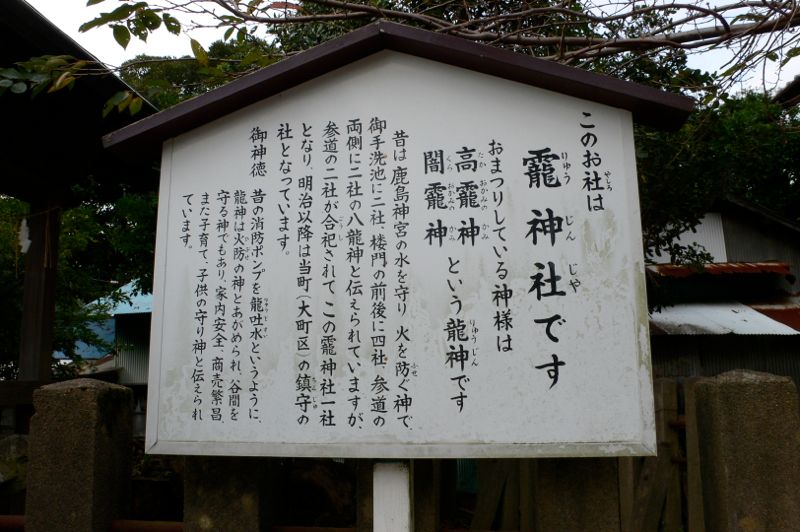 このお社は
龗神社です
おまつりしている神様は
高龗神
闇龗神
という龍神です
昔は鹿島神宮の水を守り 火を防ぐ神で、
御手洗池に二社、楼門の前後に四社、参道の
両側に二社の八龍神と伝えられていますが、
参道の二社が合祀されて、この龗神社一社
となり、明治以降は当町(大町区)の鎮守の
社となっています。
御神徳
昔の消防ポンプを龍吐水というように、
龍神は火防の神とあがめられ、谷間を
守る神でもあり、家内安全、商売繁昌、
また子育て、子供の守り神と伝えられ
ています。